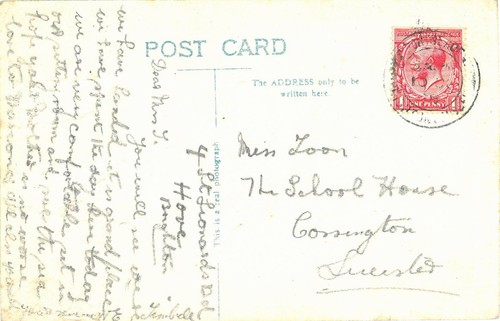 POST CARD
The ADDRESS only to be
written here.
This is a real photograph
ONE PENNY
Miss Toon
The School House
Cossington
Leicester
4 St Leonards Rd
Hove
Brighton
Dear Miss T.
You will see
we have landed it is a grand place
we have spent the day here today
we are very comfortable, get in
our sitting room and see the sea
hope your Mother is no worse
love to